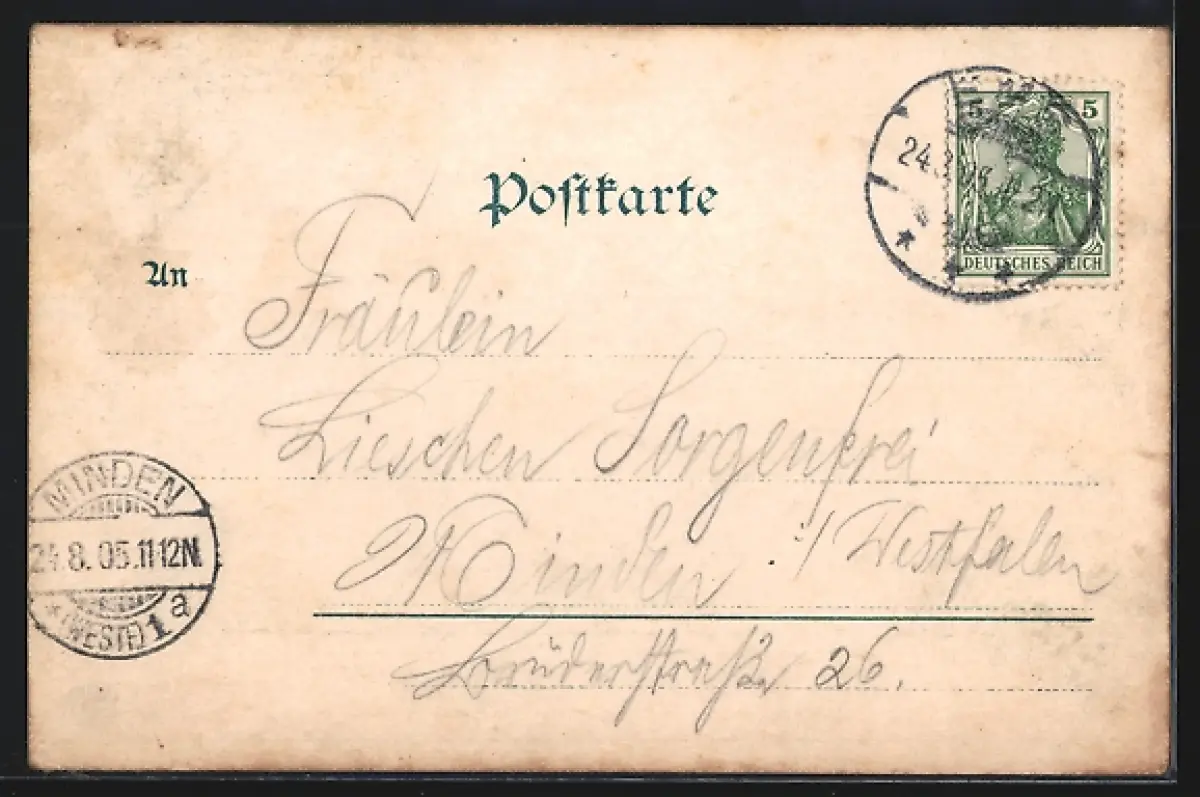 Postkarte
5 5
24.8
DEUTSCHES REICH
An
Fräulein
Lieschen Sorgenfrei
Minden i/Westfalen
Brüderstraße 26.
MINDEN
24.8.05.11-12N.
*(WESTF.)1a